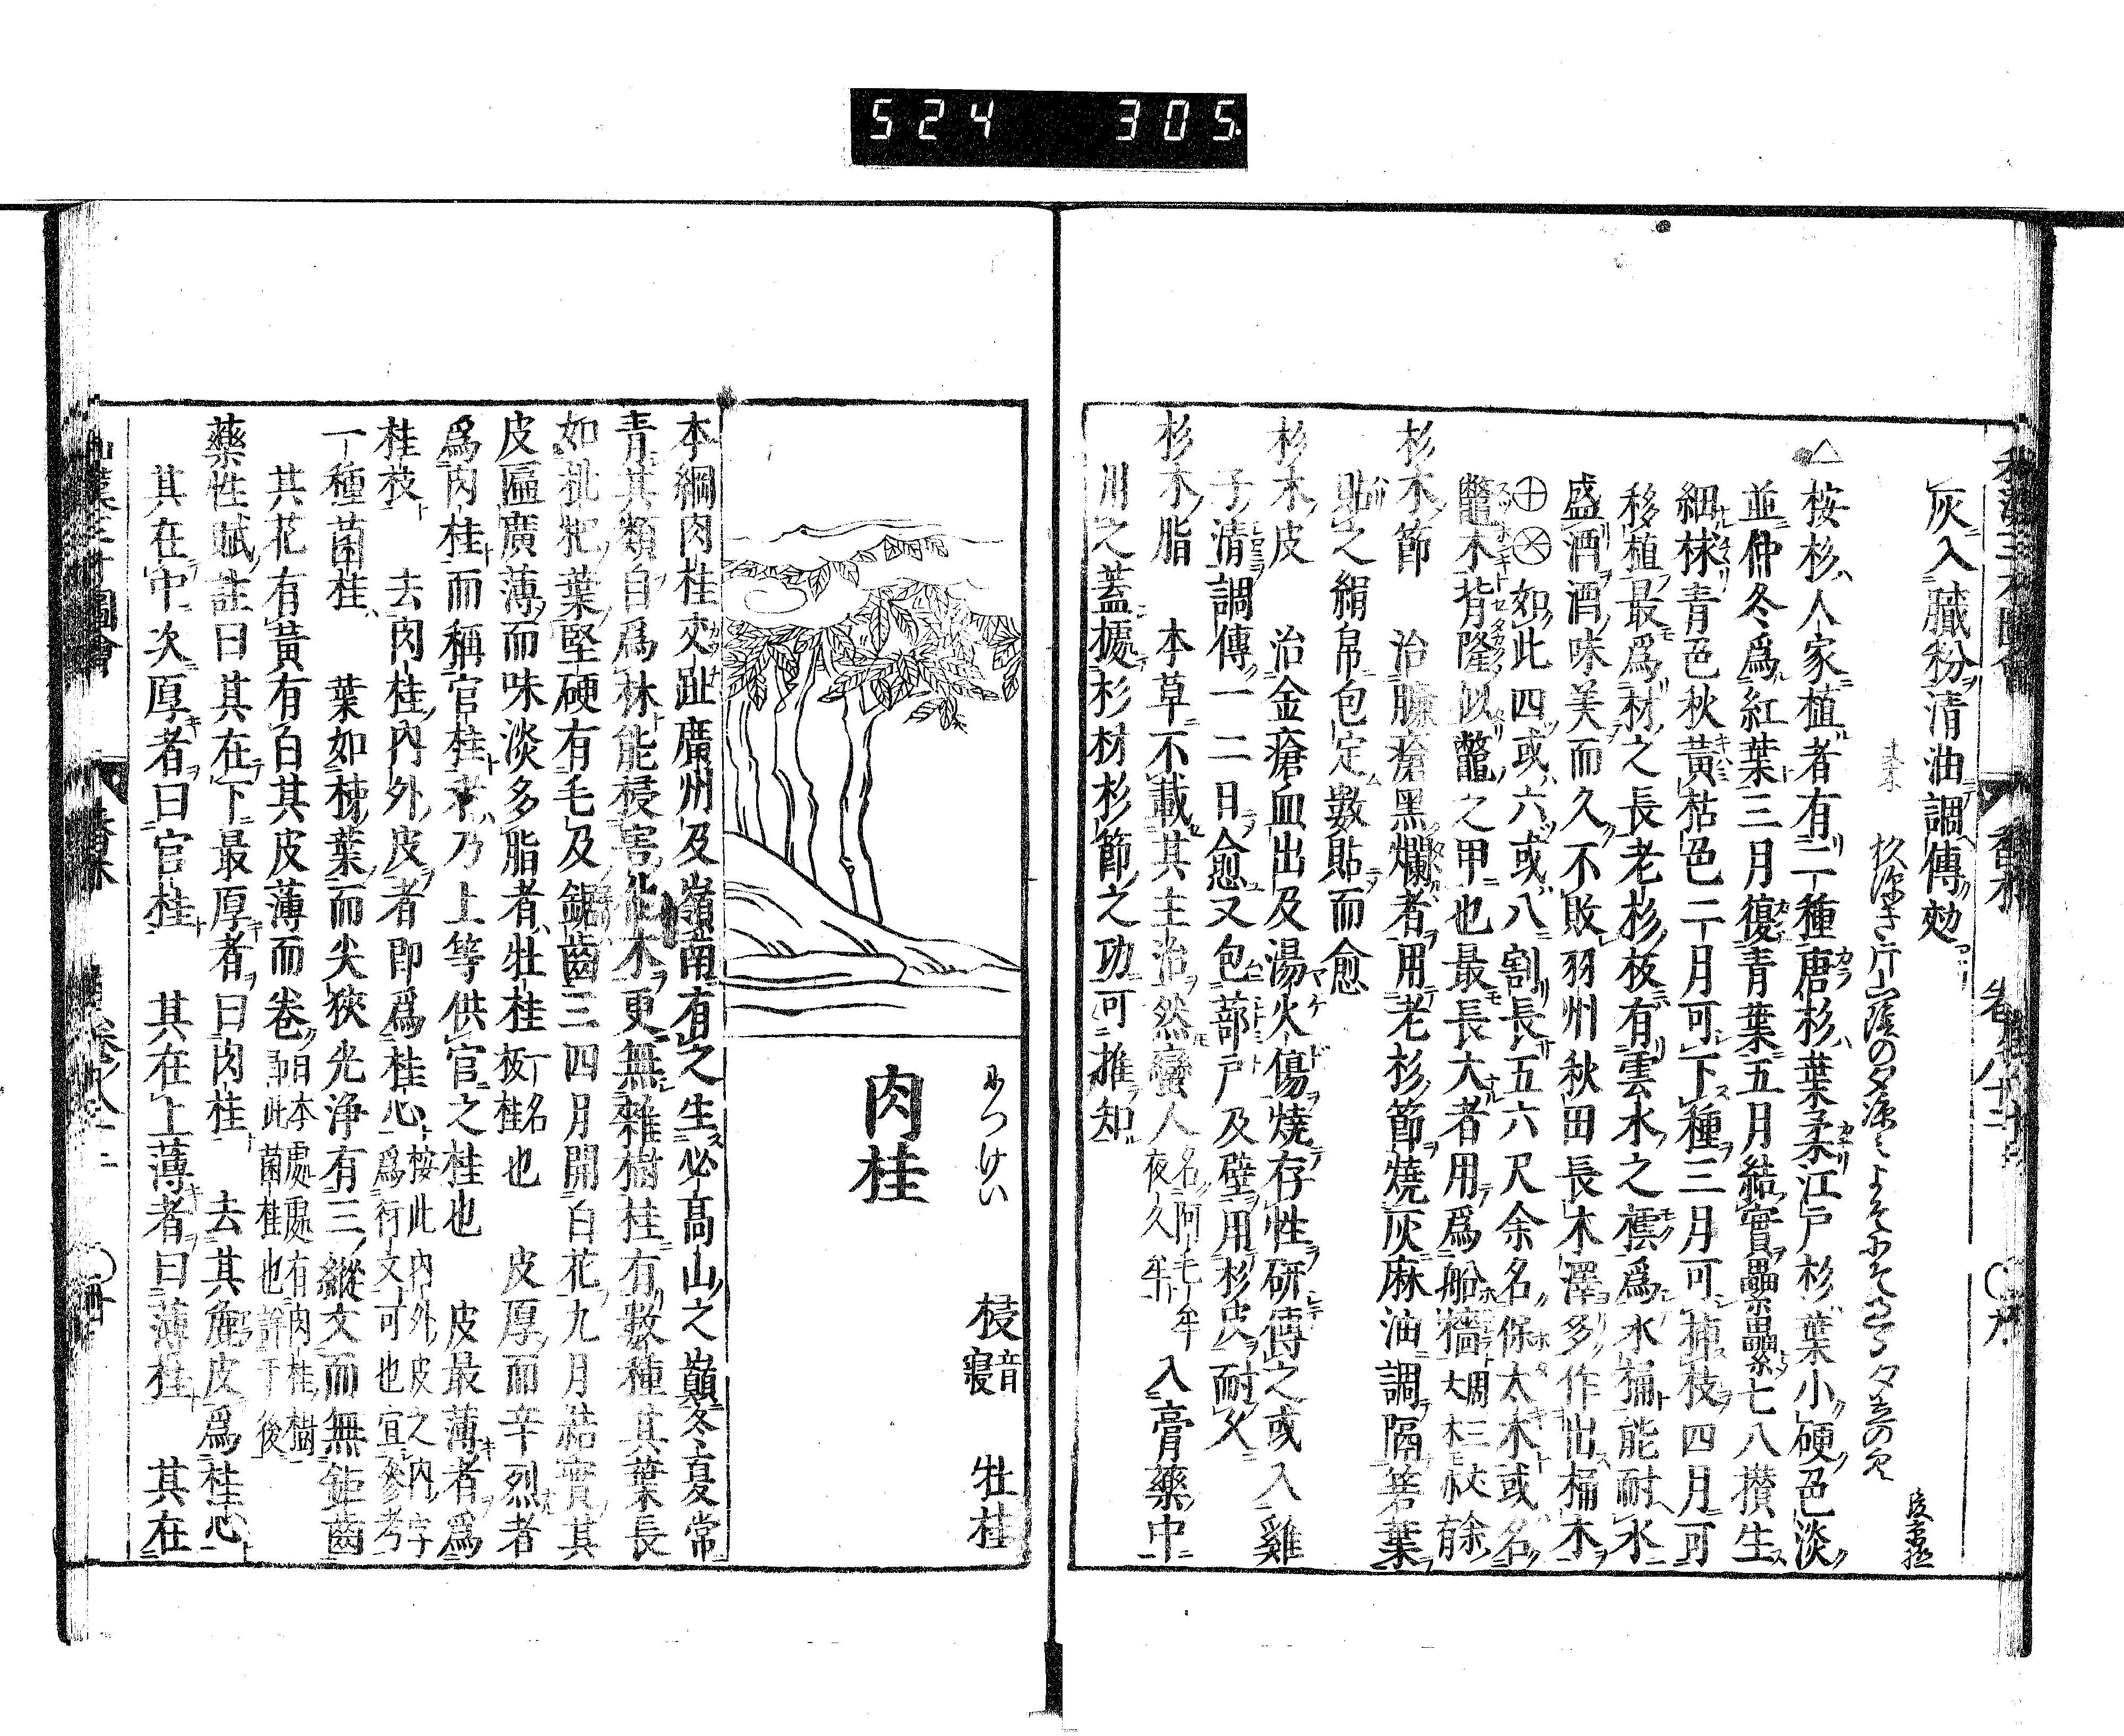 524 305
灰入膩粉清油調傳効
△桉杉人家植者有二種唐杉葉柔江戸杉葉小硬色淡
並仲冬爲紅葉三月復青葉五月結實纍纍七八攅生
細林青色秋黃枯色二月可下種三月可揷枝四月可
移植最爲材之長老杉板有雲水之樣爲水桶能耐水
盛酒酒味美而久不敗羽州秋田長木澤多作出桶木
⊕⊗如此四或六或八割長五六尺余名保太木或名
鼈木背隆似鼈之甲也最長大者用爲船檣
杉木節 治臁瘡黑爛者用老杉節燒灰麻油調隔箬葉
貼之絹帛包定數貼而愈
杉木皮 治金瘡血出及湯火傷燒存性研傅之或入雞
子清調傅一二日愈又包蔀戸及壁用杉皮耐久
杉木脂 本草不載其主治然蠻人名阿毛牟夜久牟入膏藥中
用之蓋據杉材杉節之功可推知
肉桂
につけい
梫 音寢 牡桂
本綱肉桂交趾廣州及嶺南有之生必高山之巓冬夏常
青其類自爲林能梫害他木更無雜樹桂有數種其葉長
如枇杷葉堅硬有毛及鋸齒三四月開白花九月結實其
皮匾廣薄而味淡多脂者牡桂一名板桂也 皮厚而辛烈者
爲肉桂而稱官桂者乃上等供官之桂也 皮最薄者爲
桂枝 去肉桂內外皮者即爲桂心桉此內外皮之內字爲衍文可也宜參考
一種菌桂 葉如柿葉而尖狹光浄有三縱文而無鉅齒
其花有黃有白其皮薄而卷日本處處有肉桂樹即此菌桂也詳于後
藥性賦註曰其在下最厚者曰肉桂 去其麁皮爲桂心
其在中次厚者曰官桂 其在上薄者曰薄桂 其在